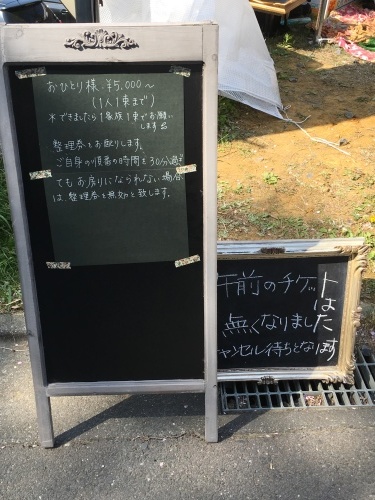 おひとり様 ¥5,000〜
(1人1束まで)
※できましたら1家族1束でお願い
します
整理券をお取りします。
ご自身の順番の時間を30分過ぎ
てもお戻りになられない場合
は、整理券を無効と致します。
午前のチケットは
無くなりました
キャンセル待ちとなります